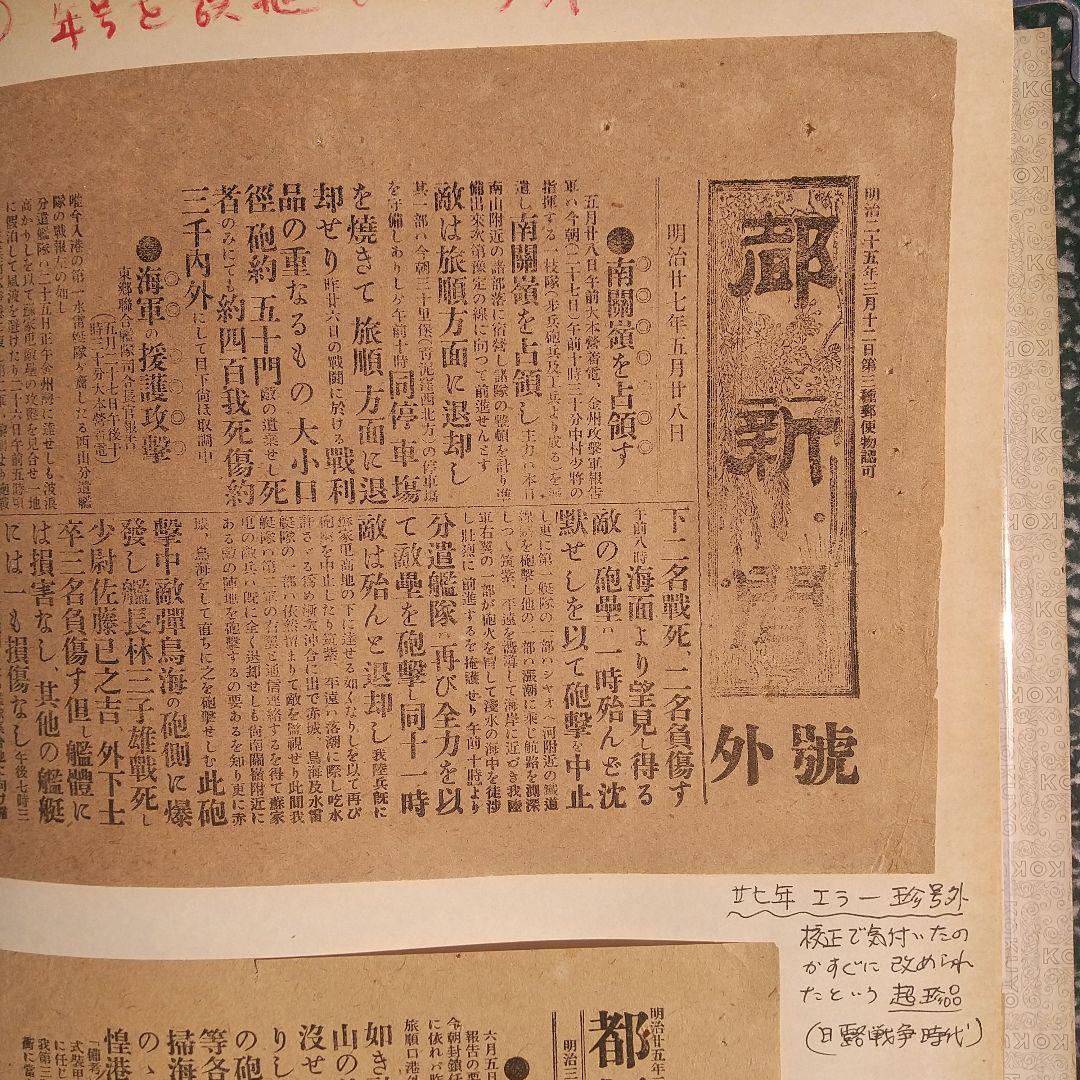 年号を
明治二十五年三月十二日第三種郵便物認可
都新聞
號外
明治廿七年五月廿八日
●南關嶺を占領す
五月廿八日午前大本營着電、金州攻擊軍報告
軍ハ今朝(二十七日)午前十時三十分中村少將の
指揮する一枝隊(步兵砲兵及工兵より成る)を
遣し南關嶺を占領し主力ハ本日
南山附近の諸部落に宿營し諸隊の整頓を計り準
備出來次第豫定の線に向つて前進せんとす
敵は旅順方面に退却し
其一部ハ今朝三十里堡(靑泥窪西北方)の停車塲
を守備しありしが午前十時同停車塲
を燒きて旅順方面に退
却せり昨廿六日の戰鬪に於ける戰利
品の重なるもの大小口
徑砲約五十門敵の遺棄せし死
者のみにても約四百我死傷約
三千內外にして目下尙ほ取調中
●海軍の援護攻擊
東鄕聯合艦隊司令長官報告
(五月二十七日午後十
時三十分大本營着電)
唯今入港の第一水雷艇隊が齎したる西山分遣艦
隊の戰報左の如し
分遣艦隊ハ二十五日正午金州灣に達せしも波浪
高かりしを以て蘇家屯砲壘の攻擊を見合せ一地
に假泊して風波を避けたり二十六日午前五時頃
下二名戰死、二名負傷す
午前八時海面より望見し得る
敵の砲壘ハ一時殆んど沈
默せしを以て砲擊を中止
し更に第一艇隊の一部ハシャオヘ河附近の鐵道
線路を砲擊し他の一部ハ漲潮に乘じ航路を測深
しつゝ筑紫、平遠を嚮導して海岸に近づき我陸
軍右翼の一部が砲火を冒して淺水の海中を徒涉
し壯烈に前進するを掩護せり午前十時より
分遣艦隊ハ再び全力を以
て敵壘を砲擊し同十一時
敵は殆んと退却し我陸兵旣に
蘇家屯高地の下に達せる如くなりしを以て再び
砲擊を中止したり筑紫、平遠ハ落潮に際し吃水
許さゞる爲め漸次沖合に出で赤城、鳥海及水雷
艇隊の一部ハ依然留まりて敵を監視せり此間我
艇隊ハ第二軍の右翼と通信連絡するを得て蘇家
屯の敵兵ハ旣に全く退却せしも尙南關嶺附近に
ある敵の陣地を砲擊するの要あるを知り更に赤
城、鳥海をして直ちに之を砲擊せしむ此砲
擊中敵彈鳥海の砲側に爆
發し艦長林三子雄戰死し
少尉佐藤巳之吉、外下士
卒三名負傷す但し艦體に
は損害なし其他の艦艇
には一も損傷なし午後七時三
廿七年 エラー 珍号外
校正で気付いたの
かすぐに 改められ
たという 超珍品
(日露戦争時代)
明治廿五年
都
明治三
六月五日
報告の要
今朝封鎖任
に依れバ昨
旅順口港外
如き
山の
沒せ
りし
の砲
等各
掃海
の、
惶港
「備考
式裝甲
に任じ
我第三
衝に當
KOKUYO